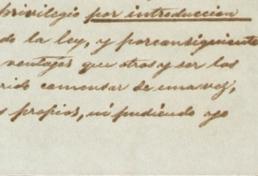 privilegio por introduccion
do la ley, y por consiguiente
ventajas que otros y ser los
comenzar de una vez,
s propios, ni pudiendo yo